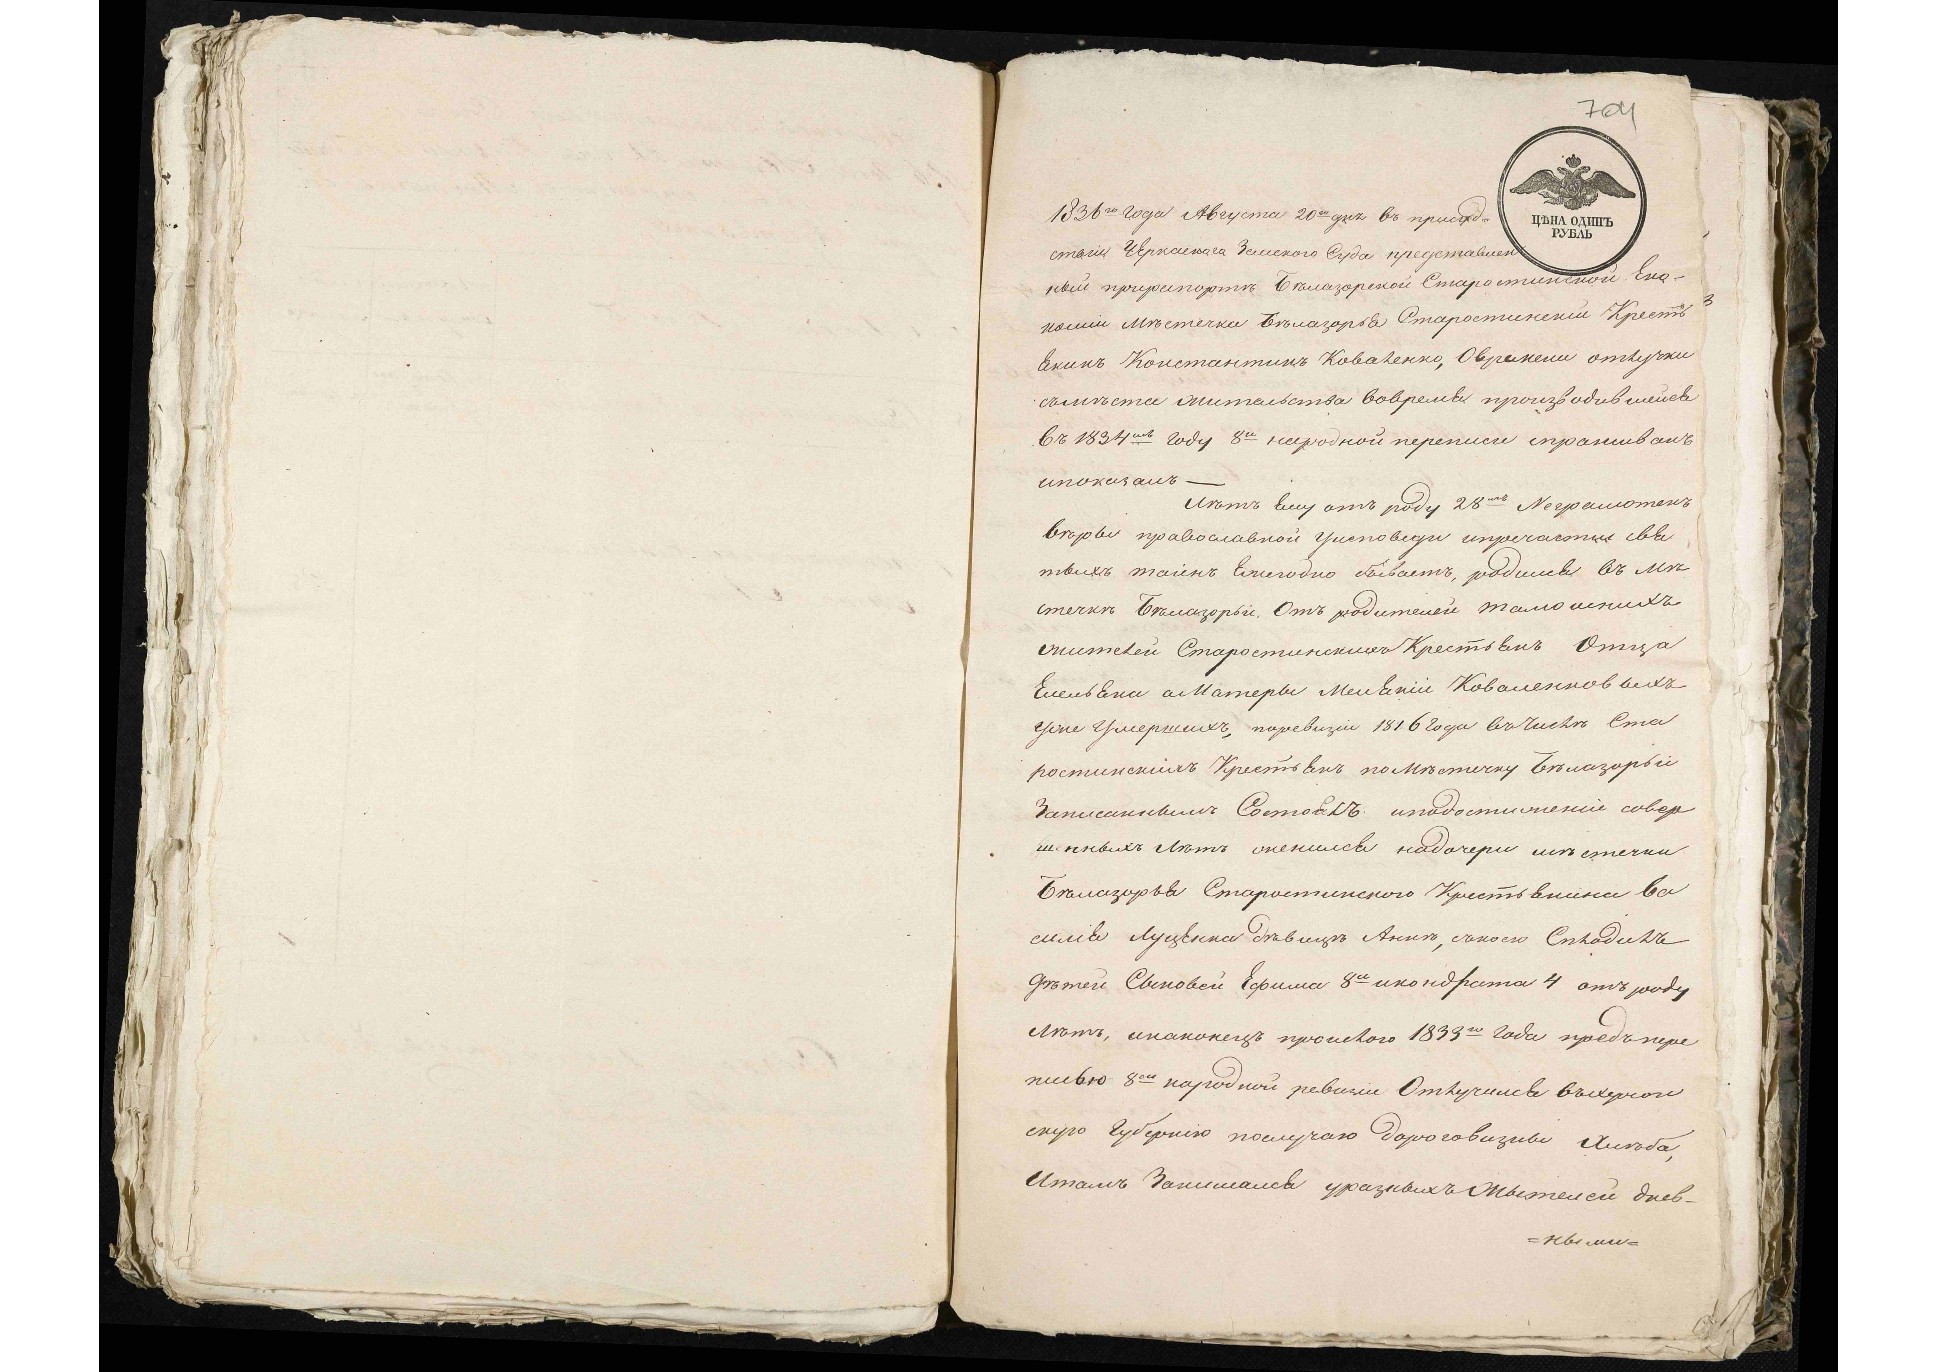 704
ЦѢНА ОДИНЪ
РУБЛЬ
1836го года Августа 20го дня въ присуд-
ствіи Черкаскаго Земского Суда представлен
ный прирапортѣ Бѣлазорской Старостинской Еко-
номіи Мѣстечка Бѣлазорья Старостинскій Крестъ
янинъ Константинъ Коваленко, Овремени отлучки
съмѣста жительства вовремя производившейся
въ 1834мъ году 8й народной переписи спрашиванъ
ипоказалъ —
Лѣтъ ему отъ роду 28мъ Неграмотенъ
вѣры православной уисповеди ипричастия свя
тыхъ таинъ Ежегодно бываетъ, родился въ мѣ
стечкѣ Бѣлазорьи. Отъ родителей тамошнихъ
жителей Старостинскихъ Крестьянъ Отца
Емельяна аМатеры Меланіи Коваленковыхъ
уже умершихъ, поревизіи 1816 года въчислѣ Ста
ростинскихъ Крестьянъ поМѣстечку Бѣлазорьи
Записаннымъ Состоялъ иподостиженіи совер
шенныхъ Лѣтъ оженился надочери мѣстечка
Бѣлазорья Старостинского Крестьянина Ва
силія Луценка дѣвицѣ Аннѣ, съкоею Сплодилъ
дѣтей Сыновей Ефима 8м икондрата 4 отъ роду
Лѣтъ, инаконецъ прошлого 1833го года предъ пере
писью 8ой народной ревизіи Отлучился въхерсон
скую Губернію послучаю дороговизны Хлѣба,
Итамъ Занимался уразныхъ Жытелей днев-
=ными=